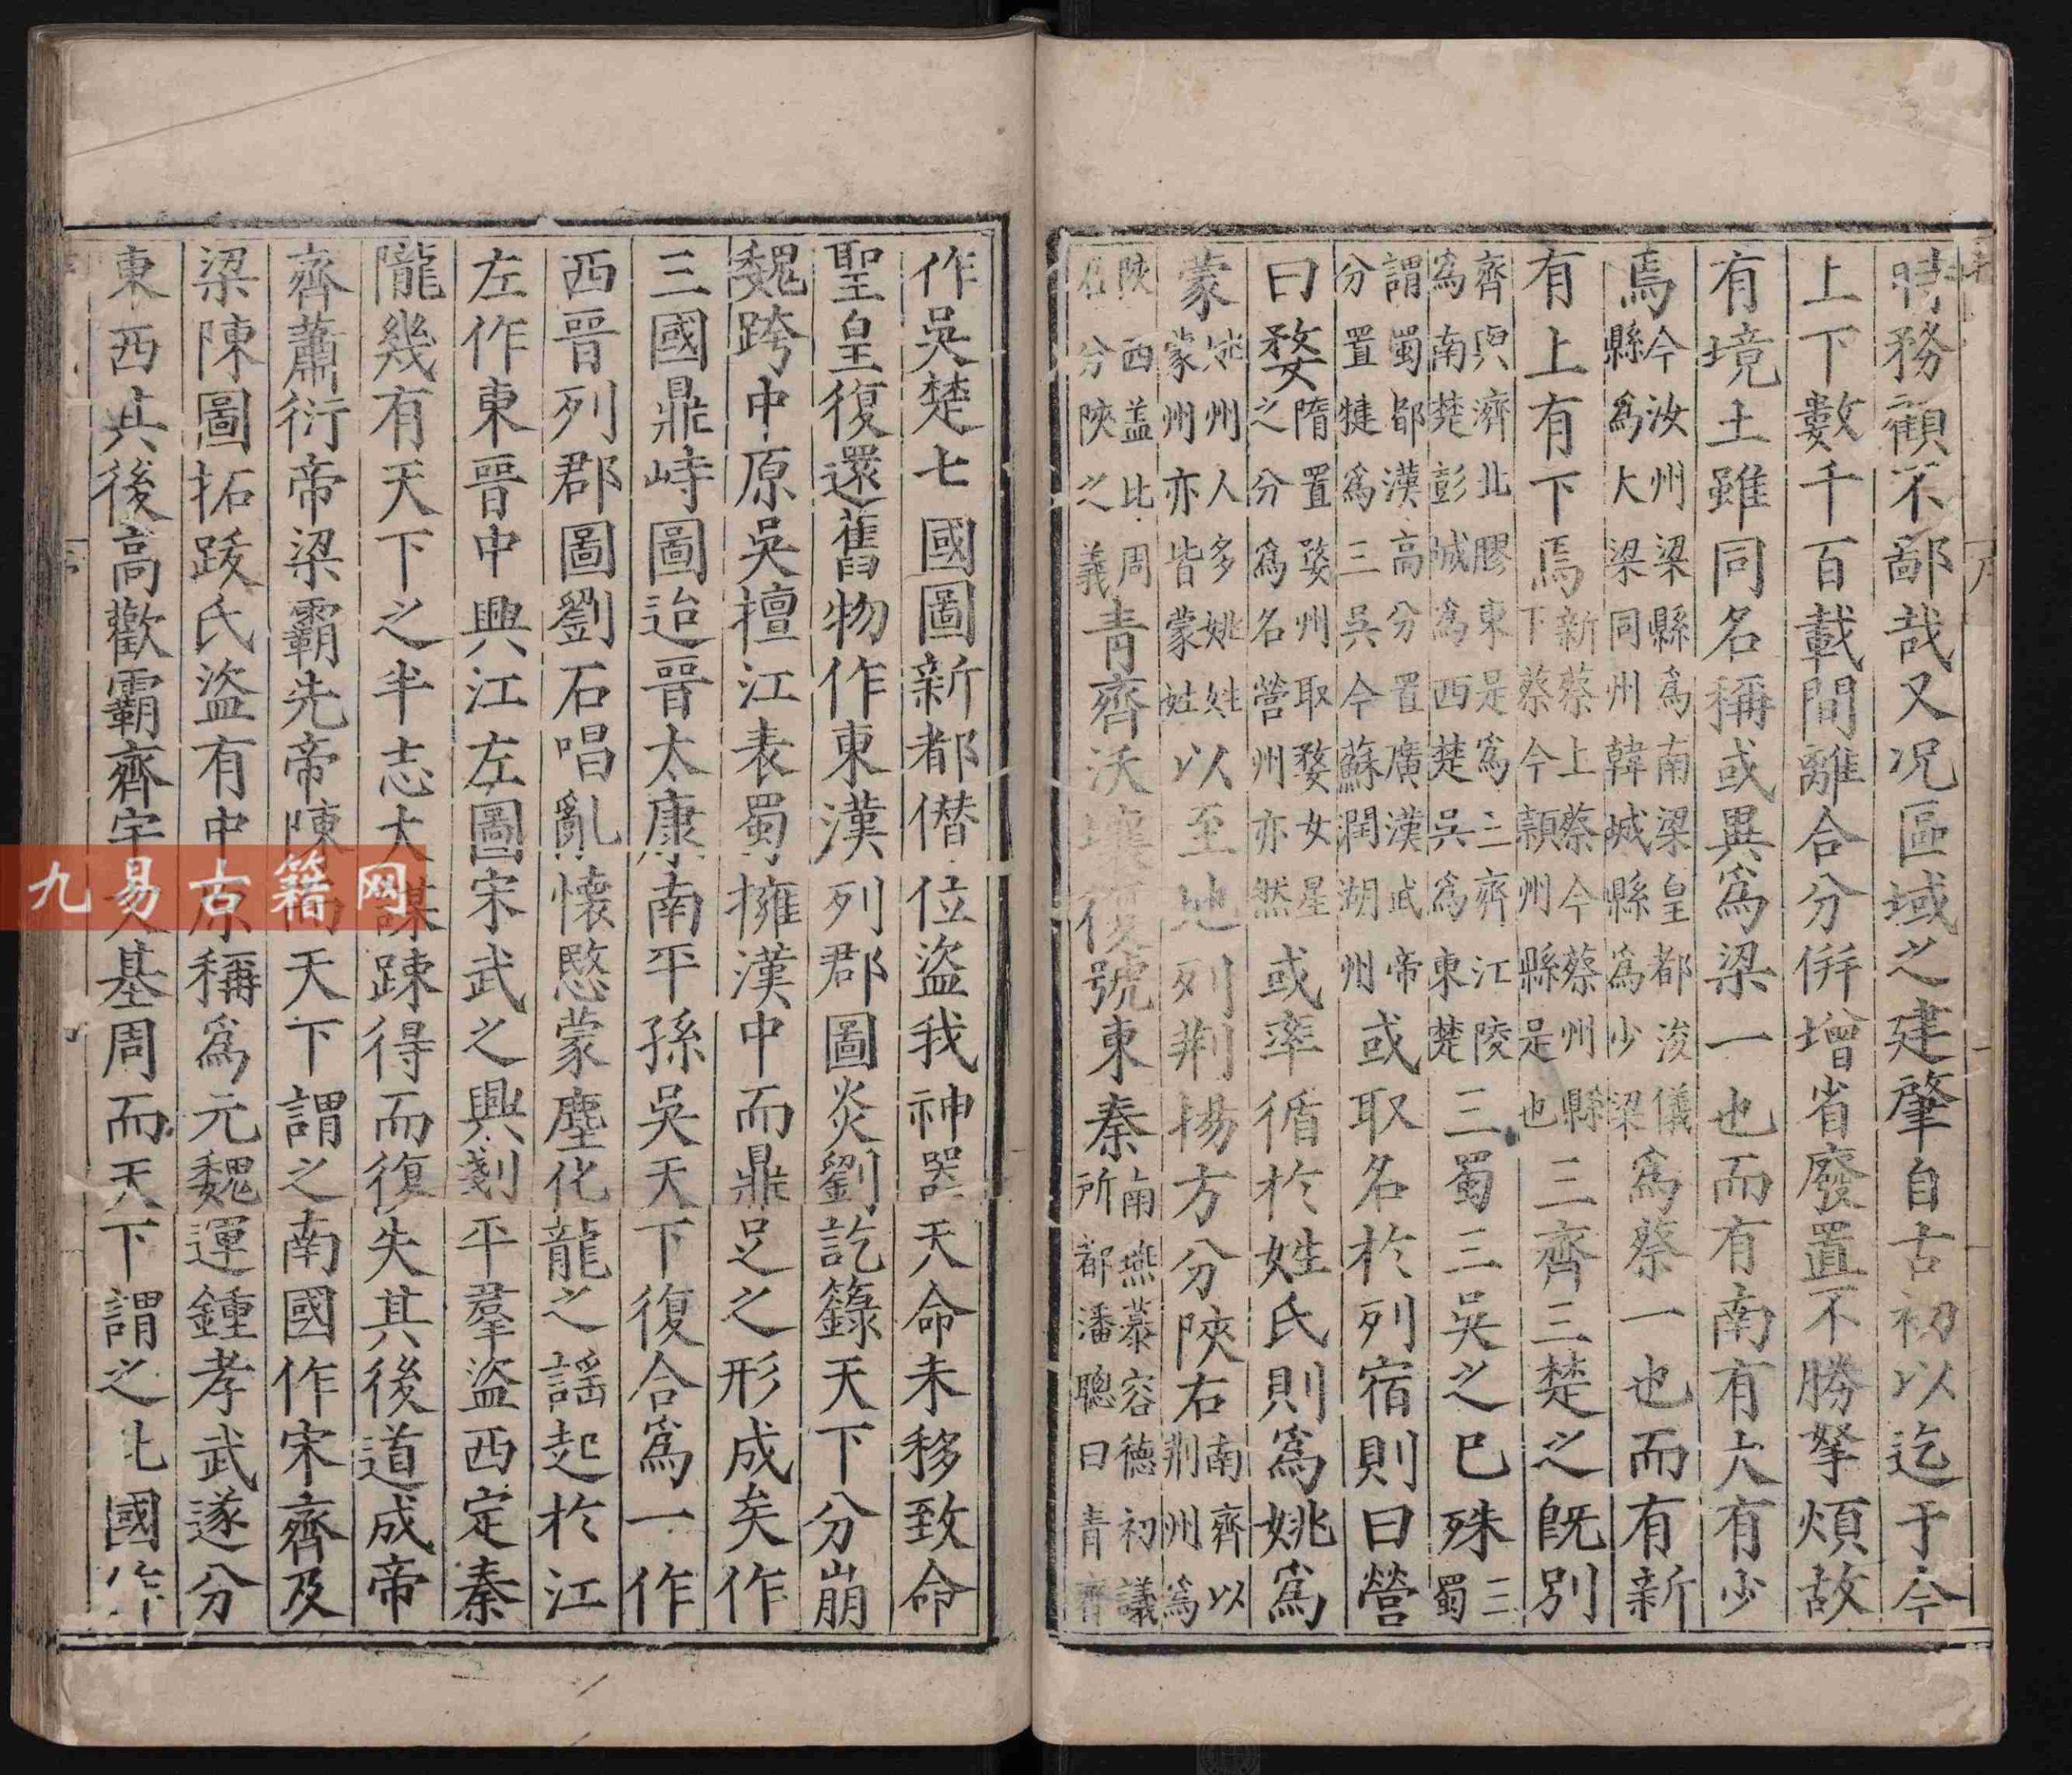 時務顧不鄙哉又况區域之建肇自古初以迄于今
上下數千百載間離合分倂增省廢置不勝拏煩故
有境土雖同名稱或異為梁一也而有南有大有少
焉今汝州梁縣為南梁皇都浚儀縣為大梁同州韓城縣為少梁為蔡一也而有新
有上有下焉新蔡蔡上蔡今蔡州縣下蔡今潁州縣是也三齊三楚之旣別
齊與濟北膠東是為三齊江陵為南楚彭城為西楚吳為東楚三蜀三吳之已殊三蜀
謂蜀郡漢高分置廣漢武帝分置犍為三吳今蘇潤湖州或取名於列宿則曰營
曰婺隋置婺州取婺女星之分為名營州亦然或率循於姓氏則為姚為
蒙姚州人多姚姓蒙州亦皆蒙姓以至地列荆揚方分陝右南齊以荆州為
陝西蓋比周名分陝之義青齊沃壤復號東秦南燕慕容德初議所都潘聰曰青齊
作吳楚七國圖新都僭位盜我神器天命未移致命
聖皇復還舊物作東漢列郡圖炎劉訖籙天下分崩
魏跨中原吳擅江表蜀擁漢中而鼎足之形成矣作
三國鼎峙圖迨晉太康南平孫吳天下復合為一作
西晉列郡圖劉石唱亂懷愍蒙塵化龍之謠起於江
左作東晉中興江左圖宋武之興剗平羣盜西定秦
隴幾有天下之半志大謀踈得而復失其後道成帝
齊蕭衍帝梁霸先帝陳而天下謂之南國作宋齊及
梁陳圖拓跋氏盜有中原稱為元魏運鍾孝武遂分
東西其後高歡霸齊宇文基周而天下謂之北國作
九易古籍网